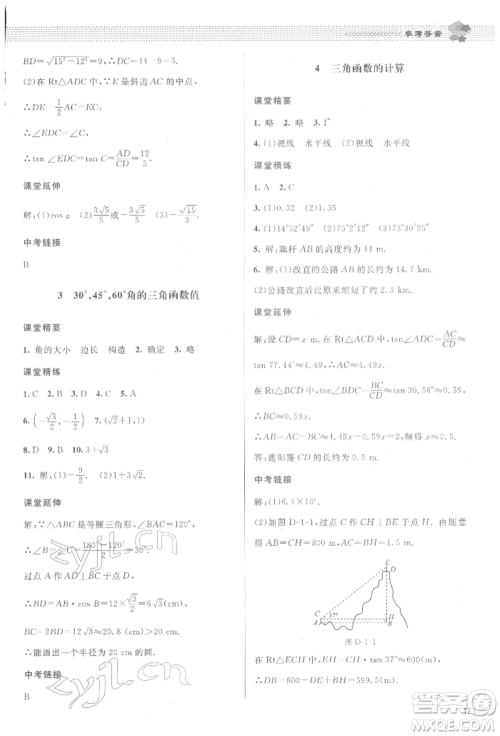 参考答案
BD=√(15²-12²)=9.
∴DC=BC-BD=14-9=5.
(2)在Rt△ADC中,∵E是斜边AD的中点,
∴DE=1/2 AC=EC.
∴∠EDC=∠C.
∴tan∠EDC=tan C=AD/CD=12/5.
课堂延伸
解:(1)cos α (2)3√5/5或-3√5/5 (3)√5/5
中考链接
B
3 30°,45°,60°角的三角函数值
课堂精要
1. 角的大小 边长 构造 2. 确定 3. 略
课堂精练
1. C 2. A 3. C 4. A 5. A
6. (-√3/2,-1/2) 7. (√2+1)
8. D 9. D 10. 3+√3
11. 解:(1)-9/2. (2)-1+3√3.
课堂延伸
解:∵△ABC是等腰三角形,∠BAC=120°,
∴∠B=∠C=(180°-120°)/2=30°.
过点A作AD⊥BC于点D,
∴BD=AB·cos 30°=12×√3/2=6√3(cm),
BC=2BD=12√3≈20.8(cm)>20(cm).
∴能画出一个半径为20 cm的圆.
中考链接
B
4 三角函数的计算
课堂精要
1. 略 2. 略 3. 略
4. (1)视线 水平线 (2)视线 水平线
课堂精练
1. A 2. C
3. (1)0.32 (2)1.35
4. (1)14°52′49″ (2)75°31′21″
5. 解:旗杆AB的高度约为14 m.
6. 解:(1)改直的公路AB的长约为14.7 km.
(2)公路改直后比原来缩短了约2.3 km.
课堂延伸
解:设CD=x,在Rt△ACD中,tan∠ADC=AC/CD=
tan 77.44°≈4.49,
∴AC≈4.49x.
在Rt△BCD中,tan∠BDC=BC/CD=tan 30.56°≈
0.59,
∴BC≈0.59x.
∴AB=AC-BC≈4.49x-0.59x=1.5.
∴x≈0.4(m).
答:遮阳篷CD的长约是0.4 m.
中考链接
解:(1)6.4×10⁵
(2)如图D-1-1,过点C作CH⊥BD于点H,由题意
得CH=AB=800 m,AC=BH=500 m.
E
D
C
H
A
B
图D-1-1
在Rt△ECH中,EH=CH·tan 37°≈600 m,
∴DB=600-DE+500=599.5(m).